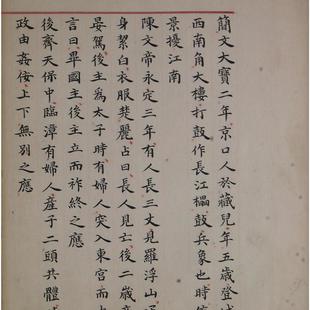 簡文大寶二年京口人於藏兒年五歲登城
西南角大樓打鼓作長江檛鼓兵象也時侯
景擾江南
陳文帝永定三年有人長三丈見羅浮山通
身絜白衣服楚麗占曰長人見亡後二歲帝
晏駕後主為太子時有婦人突入東宮而大
言曰畢國主後主立而祚終之應
後齊天保中臨漳有婦人産子二頭共體
政由姦佞上下無別之應